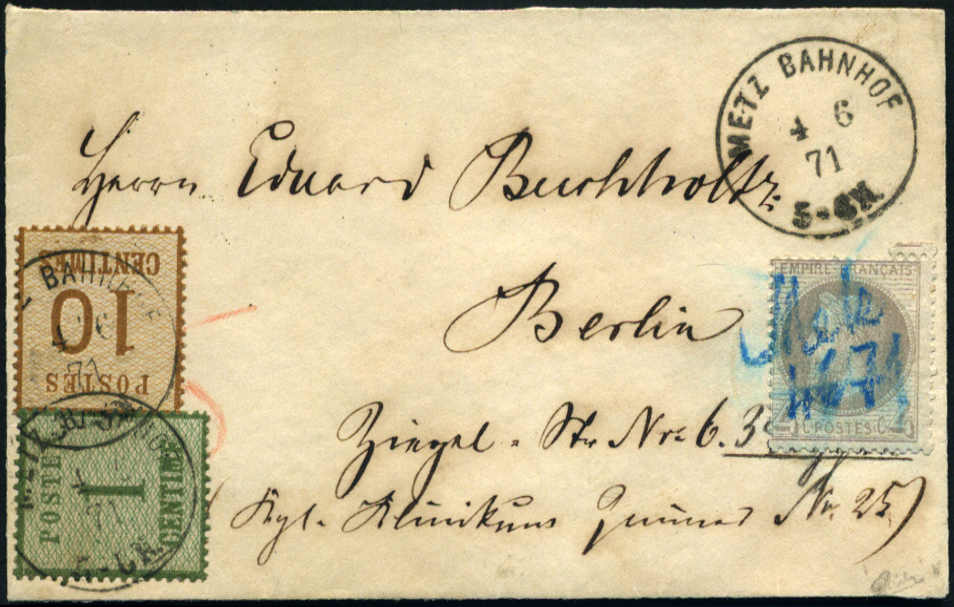 METZ BAHNHOF
4 6
71
5-6N
Herrn Eduard Buchholtz
Berlin
Ziegel-Str Nr 6. 3
(Kgl. Klinikum Zimmer Nr. 25)
10
CENTIMES
POSTES
BAHNHOF
4 6
71
POSTES
1
CENTIME
EMPIRE FRANÇAIS
POSTES